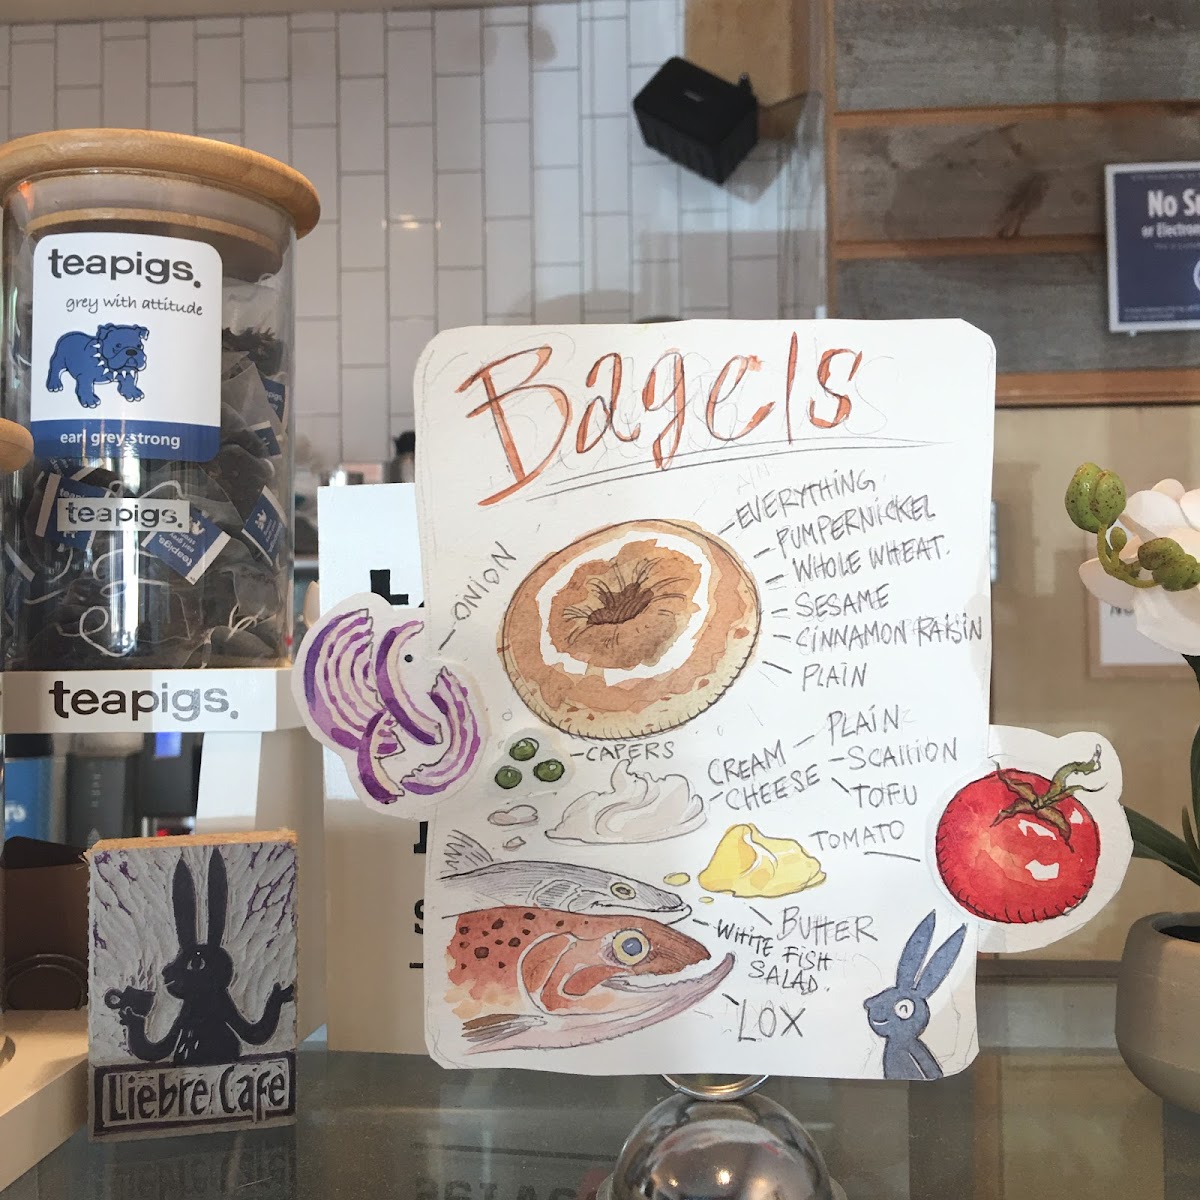 teapigs.
grey with attitude
earl grey strong
teapigs.
teapigs.
teapigs.
Liebre Cafe
Bagels
EVERYTHING
PUMPERNICKEL
WHOLE WHEAT
SESAME
CINNAMON RAISIN
PLAIN
ONION
CAPERS
CREAM
CHEESE
PLAIN
SCALLION
TOFU
TOMATO
BUTTER
WHITE FISH
SALAD.
LOX
No
or